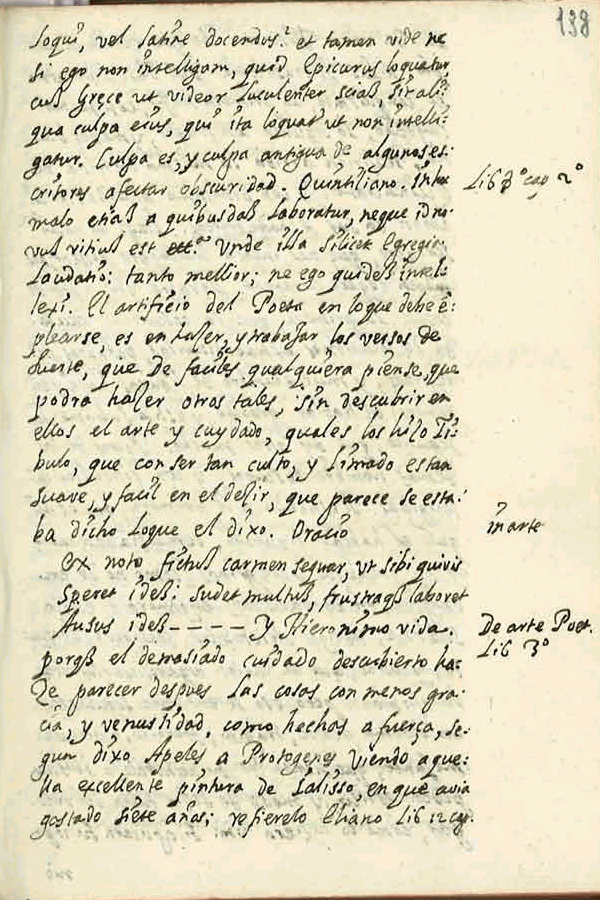 138
loqui, vel latine docendus? et tamen vide ne
si ego non intelligam, quid Epicurus loquatur
cuß Gręce ut videor luculenter sciaß, sit ali:
qua culpa eius, qui ita loquat' ut non intelli:
gatur. Culpa es, y culpa antigua de algunos es:
critores afectar obscuridad. Quintiliano. In hoc
Lib 8º cap 2º
malo etiaß a quibusdaß laboratur, neque id no:
vuß vitiuß est Unde illa scilicet Egregia
laudatio: tanto mellior; ne ego quideß intel:
lexi. El artificio del Poeta en loque debe ē:
plearse, es en hazer, y trabajar los versos de
suerte, que De faciles qualquiera piense, que
podra hazer otros tales, sin descubrir en
ellos el arte y cuydado, quales los hizo Ti:
bulo, que con ser tan culto, y limado es tan
suave, y facil en el dezir, que parece se esta:
ba dicho loque el dixo. Oracio
in arte
Ex noto fictuß carmen sequar, ut sibi quivis
Speret ideß: sudet multuß, frustraqß laboret
Ausus ideß - - - - Y Hieronimo vida.
De arte Poet.
Lib 3º
porqß el demasiado cuidado descubierto ha:
ze parecer despues las cosas con menos gra:
cia, y venustidad, como hechas a fuerça, se:
gun dixo Apeles a Protogenes viendo aque:
lla excellente pintura de Ialisso, en que avia
gastado siete años; refierelo Eliano Lib 12 cap.